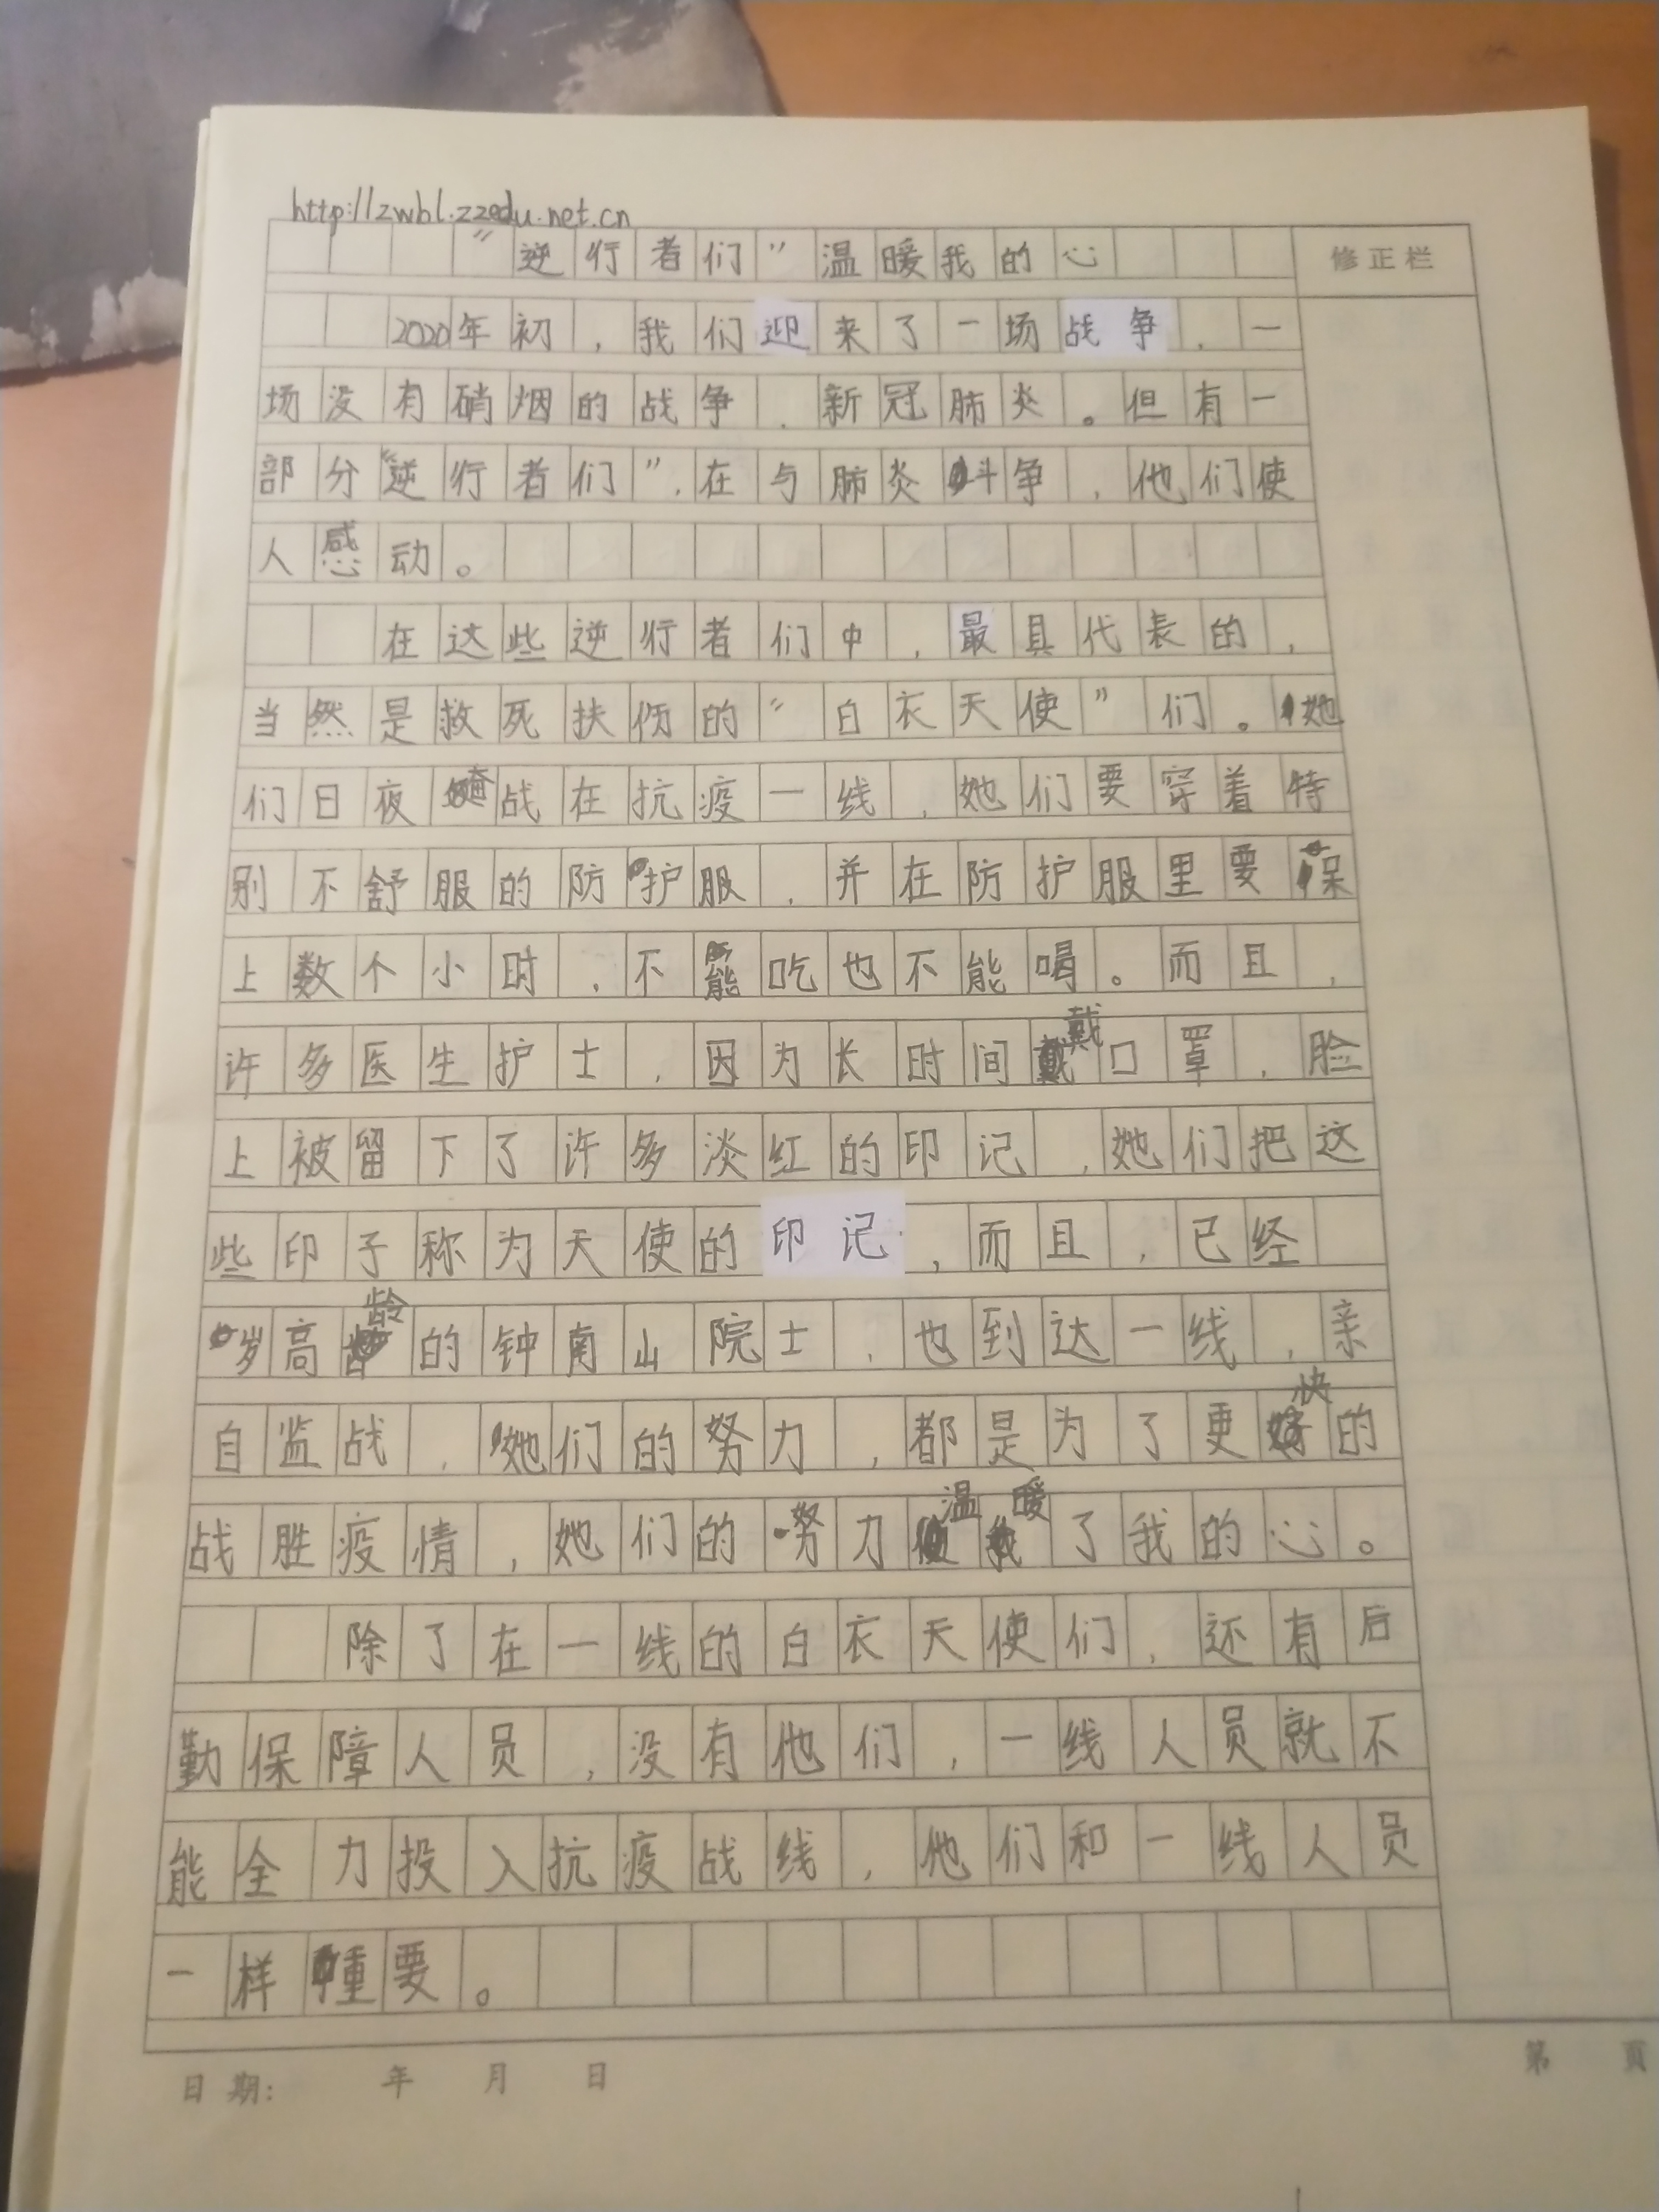 http://zwbl.zzedu.net.cn
“逆行者们”温暖我的心
修正栏
2020年初,我们迎来了一场战争,一
场没有硝烟的战争,新冠肺炎。但有一
部分“逆行者们”,在与肺炎斗争,他们使
人感动。
在这些逆行者们中,最具代表的,
当然是救死扶伤的“白衣天使”们。她
们日夜奋战在抗疫一线,她们要穿着特
别不舒服的防护服,并在防护服里要保
上数个小时,不能吃也不能喝。而且,
许多医生护士,因为长时间戴口罩,脸
上被留下了许多淡红的印记,她们把这
些印子称为天使的印记,而且,已经
岁高龄的钟南山院士,也到达一线,亲
自监战,她们的努力,都是为了更快的
战胜疫情,她们的努力温暖了我的心。
除了在一线的白衣天使们,还有后
勤保障人员,没有他们,一线人员就不
能全力投入抗疫战线,他们和一线人员
一样重要。
日期: 年 月 日
第 頁